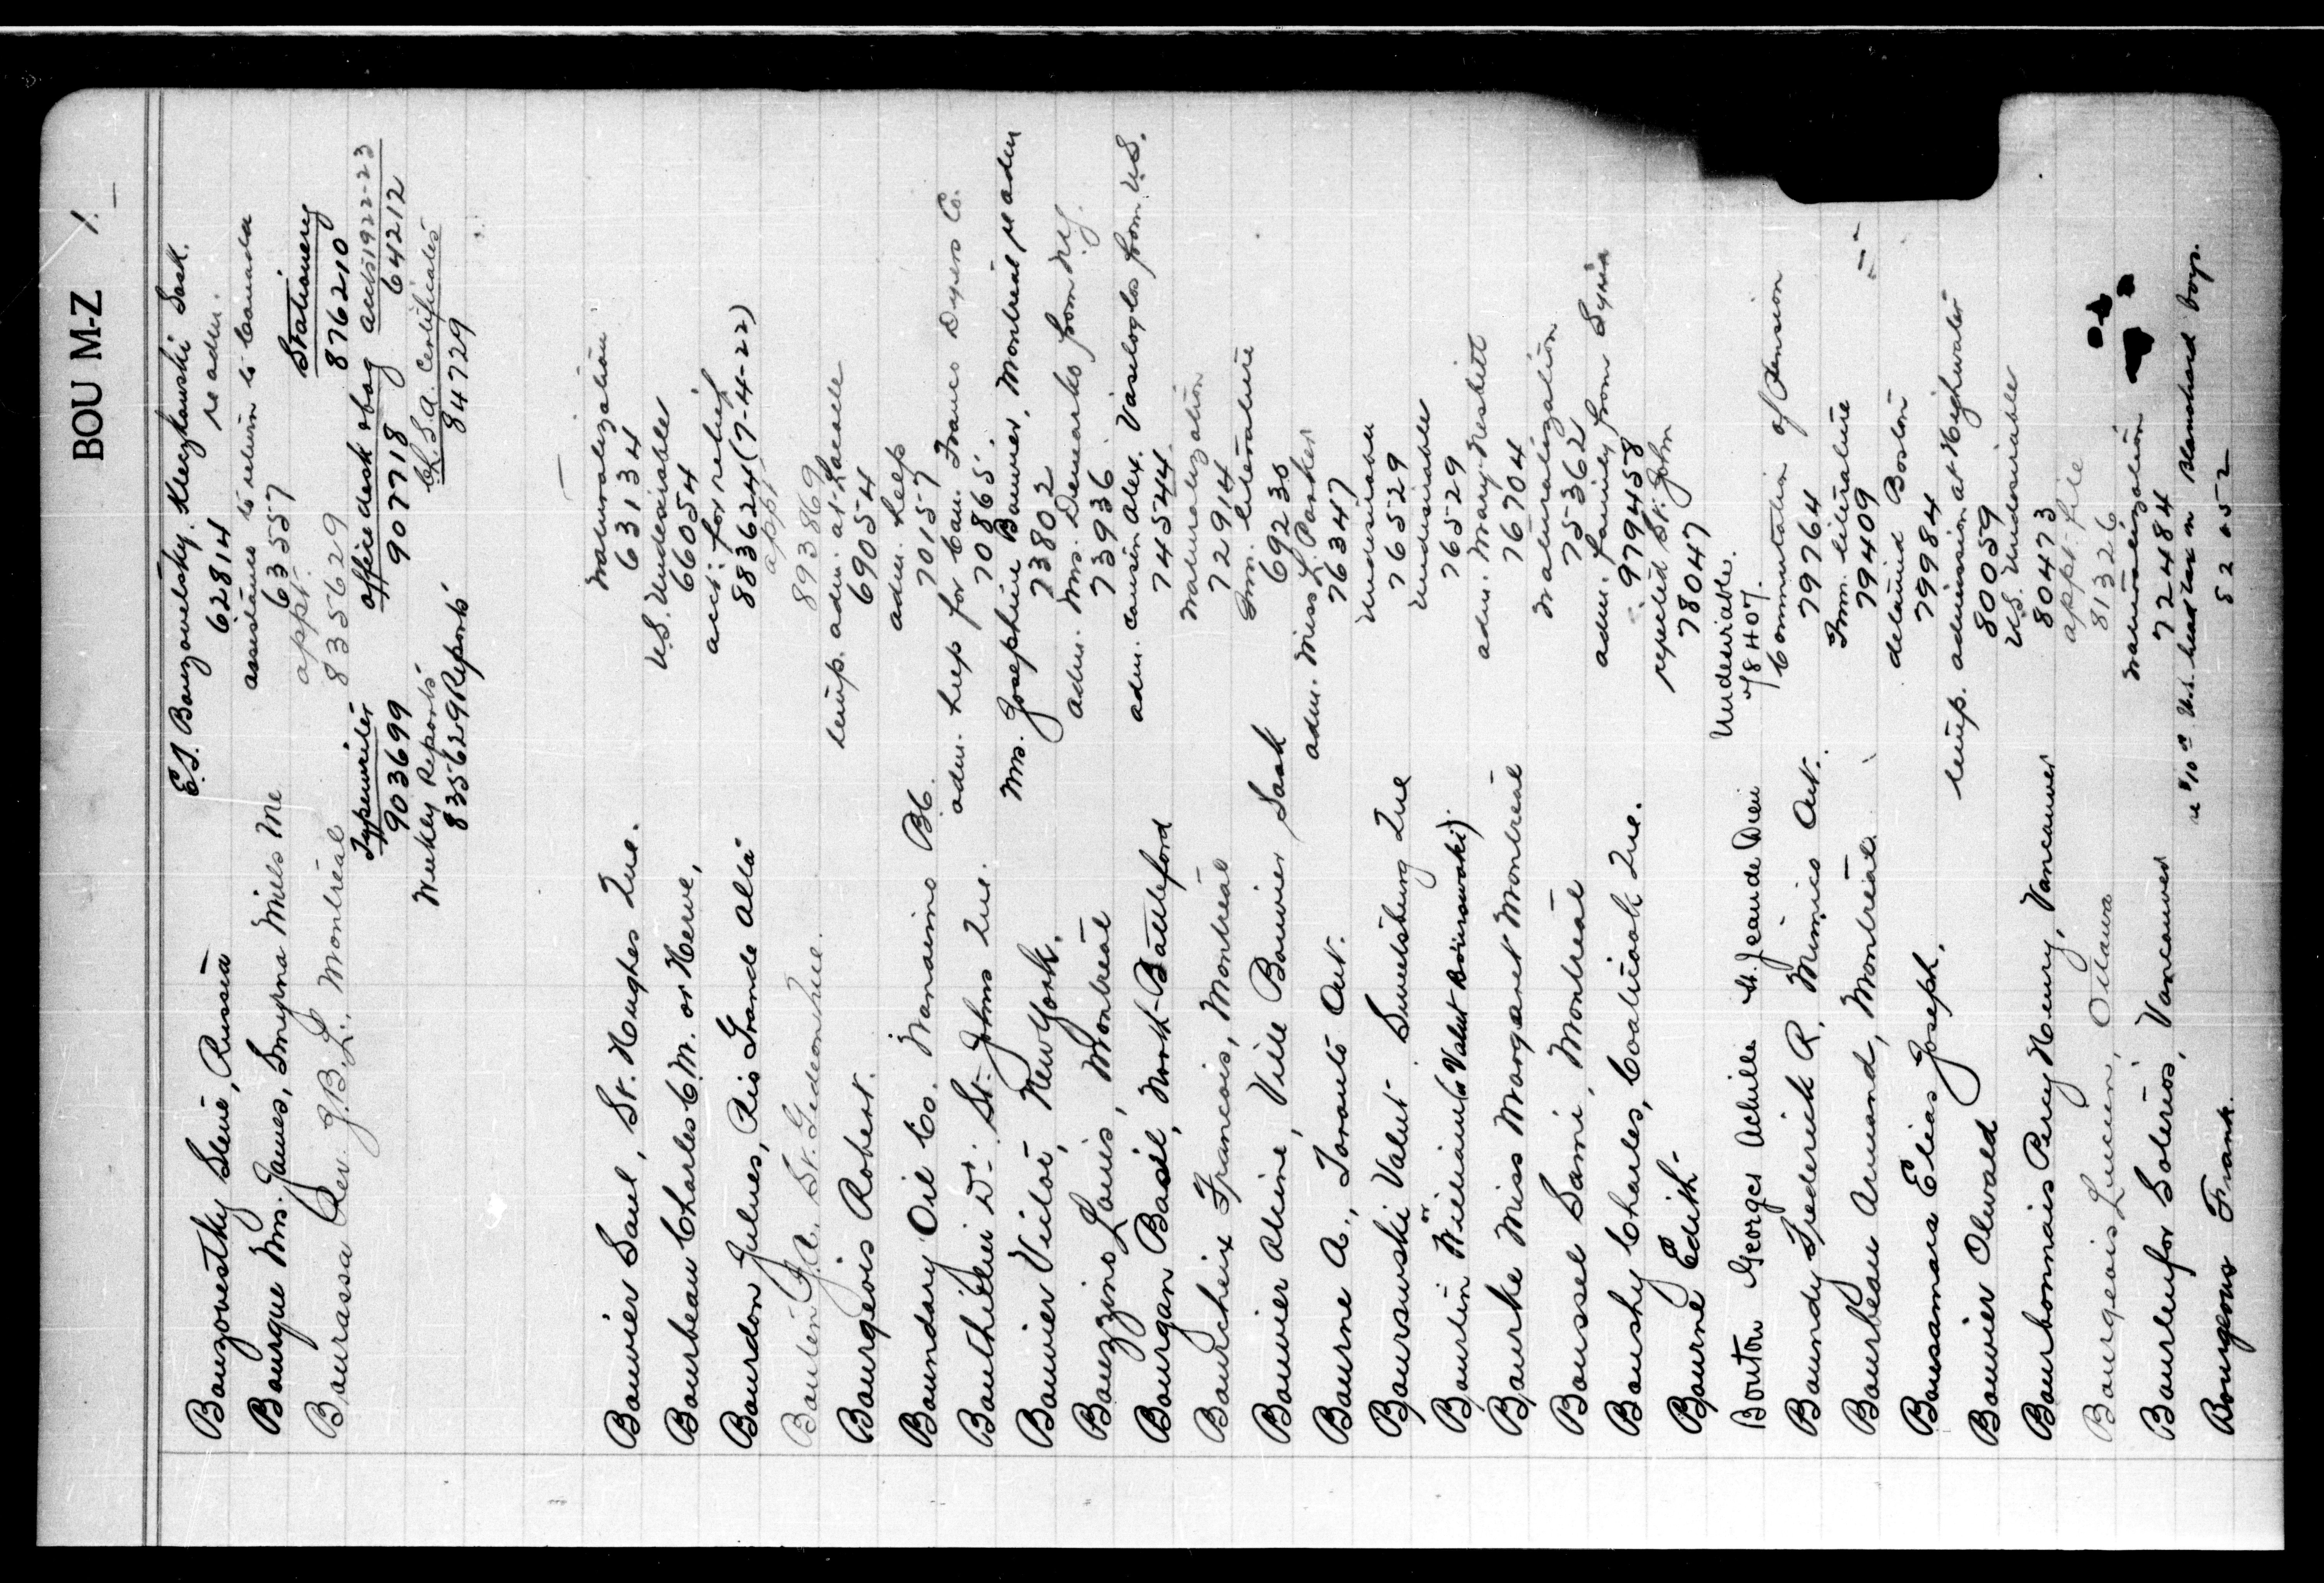 BOU M-Z 1.
E.S. Bouzovetsky. Kleczkowski Sask.
Bouzovestky Slene, Russia 62814 re adm.
assistance to return to Canada
Bourque Mrs. James, Smyrna Mills Me 63557
appt. Stationery
Bourassa Rev. J.B.L., Montreal 835629 876210
Typewriter office desk & bag accts 1922-23
903699 907718 64212
Weekly Reports C.S.A. Certificates
835629 Reports 84729
naturalization
Bouvier Saul, St. Hughes Que. 63134
U.S. Undesirable
Bourbeau Charles C.M. or Herve, 66054
acct. for relief
Bourdon Jules, Rio Grande Alta 883624 (7-4-22)
appt
Boutin J.A. St. Gedeon Que. 893869
temp. adm. at Lacolle
Bourgeois Robert. 69054
adm. help
Boundary Oil Co. Nanaimo B.C. 70157
adm. help for Can. Franco Dyers Co.
Bouthillier D. St. Johns Que. 70865.
Mrs. Josephine Bouvier, Montreal re adm
Bouvier Victor, New York. 73802
adm. Mrs. Demarko from N.Y.
Bouzzino Louis, Montreal 73936
adm. cousin Alex. Vaseloglos from U.S.
Bourgan Basil, North-Battleford 74544
naturalization
Bourcheix Francois, Montreal 72914
Imm. literature
Bouvier Alcine, Ville Bouvier Sask 69230
adm. Miss L. Parker
Bourne A., Toronto Ont. 76347
undesirable
Boursuwski Valut Sweetsburg Que 76529
undesirable
Bourlin William (or Valut Boursuwski) 76529
adm. Mary Nesbitt
Bourke Miss Margaret Montreal 76704
naturalization
Boussel Sami, Montreal 75362
adm. family from Syria
Boushy Charles, Coaticook Que. 979458
rejected St. John
Bourne Edith 78047
Undesirable.
Bouton Georges Achille St. Jean de Dieu 78407.
Commutation of Pension
Boundy Frederick R. Mimico Ont. 79764
Imm. literature
Bourbeau Armand, Montreal 79409
detained Boston
Bousamara Elias Joseph. 79984
temp. admission at Highwater
Bouvier Olwald 80059
U.S. Undesirable
Bourbonnais Percy Henry, Vancouver 80473
appt. file
Bourgeois Lucien, Ottawa 81326
naturalization
Bourleufor Soterios, Vancouver 72484
re $10.00 U.S. head tax on Blanchard boys.
Bourgeous Frank.